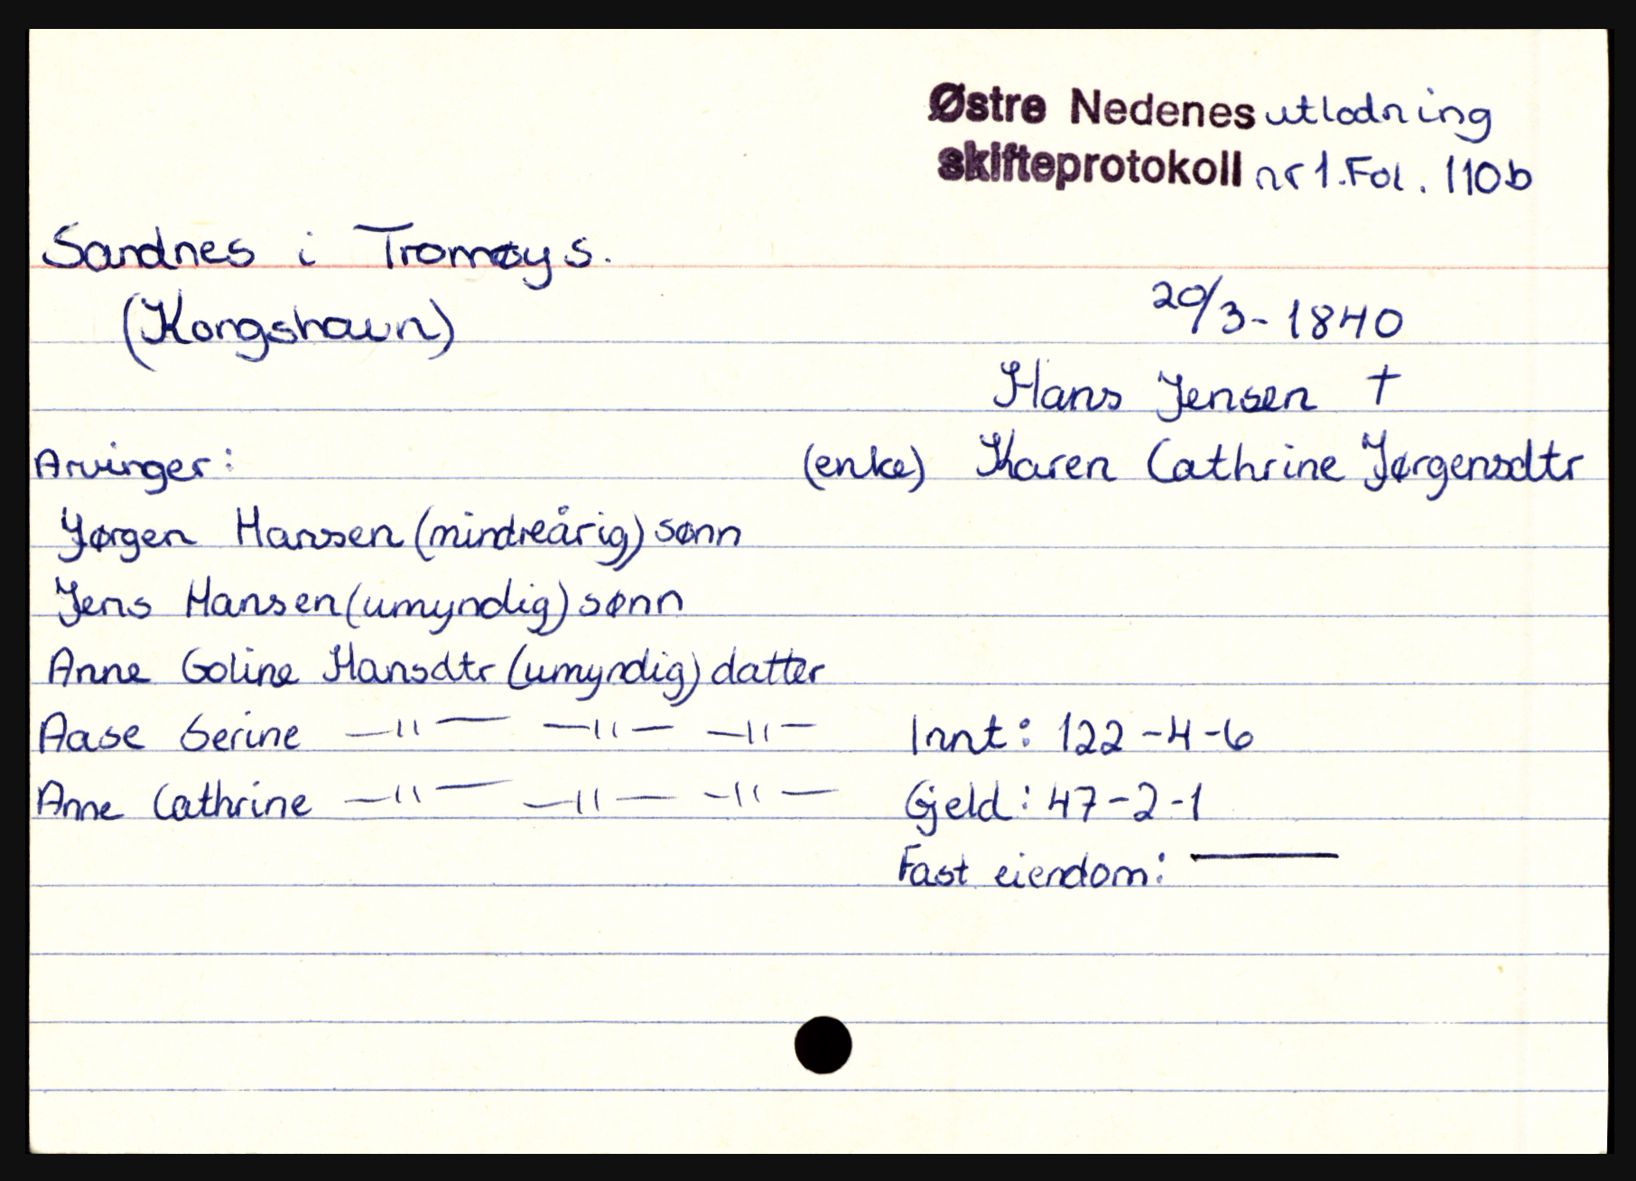 Østre Nedenes utlodning
skifteprotokoll nr 1. Fol. 110b
Sandnes i Tromøy s.
(Kongshavn)
20/3-1840
Hans Jensen †
Arvinger: (enke) Karen Cathrine Jørgensdtr
Jørgen Hansen (mindreårig) sønn
Jens Hansen (umyndig) sønn
Anne Goline Hansdtr (umyndig) datter
Aase Serine —"— —"— —"— Innt: 122-4-6
Anne Cathrine —"— —"— —"— Gjeld: 47-2-1
Fast eiendom: ——